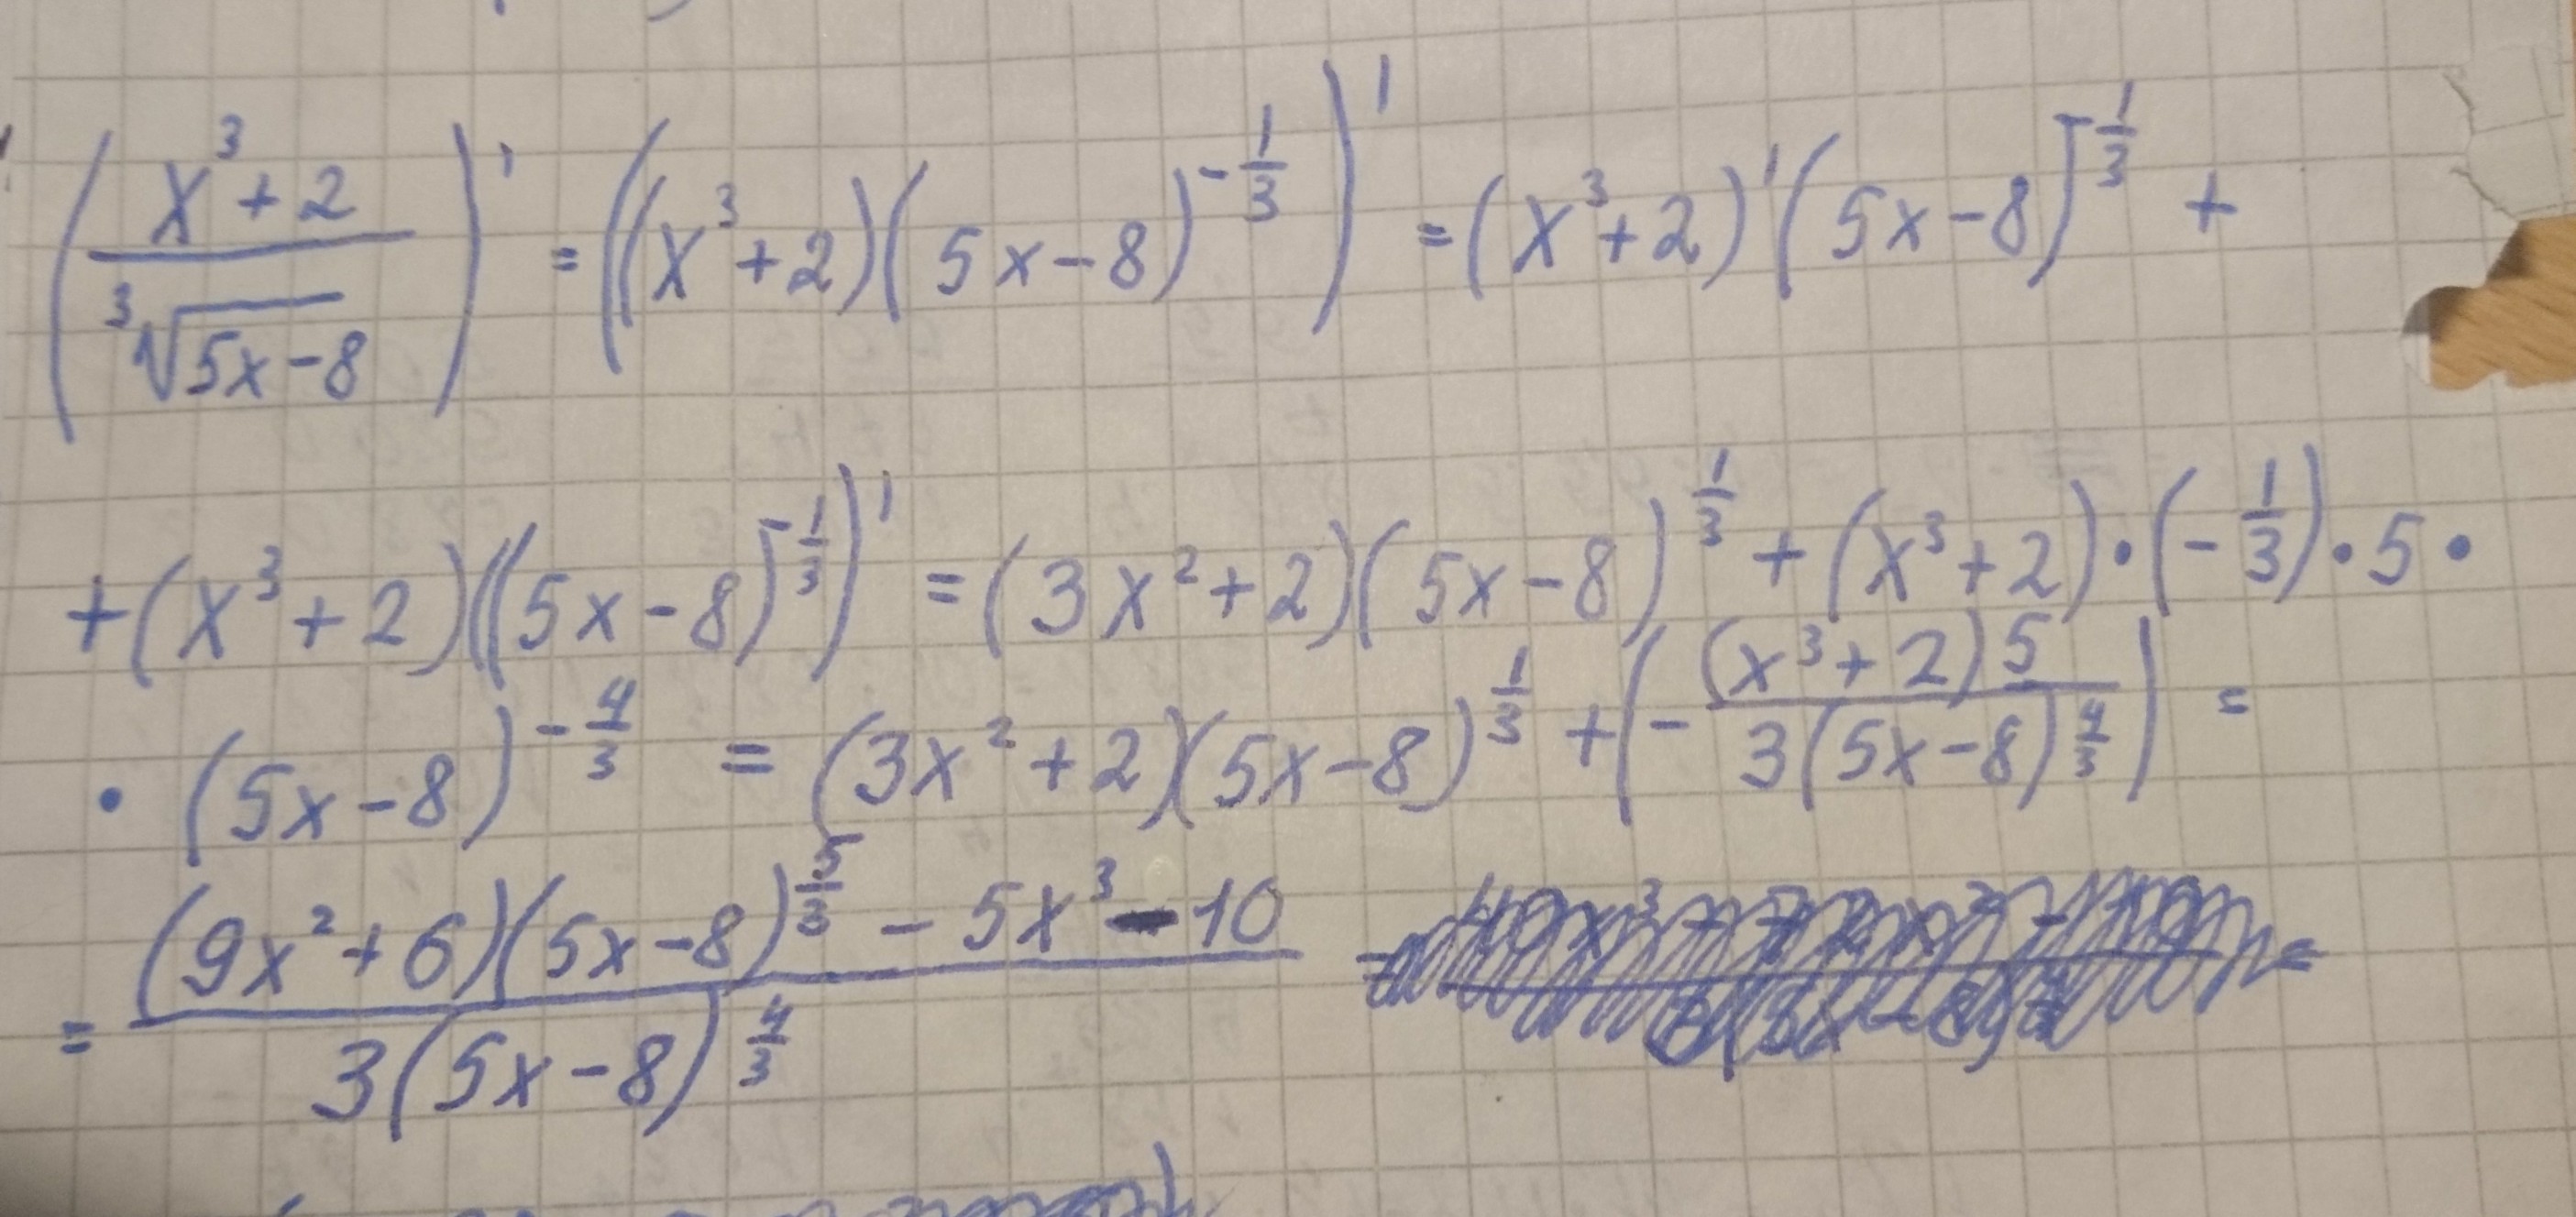 (x³+2 / ∛(5x-8))' = ((x³+2)(5x-8)^(-1/3))' = (x³+2)'(5x-8)^(-1/3) +
+(x³+2)((5x-8)^(-1/3))' = (3x²+2)(5x-8)^(1/3) + (x³+2)·(-1/3)·5·
·(5x-8)^(-4/3) = (3x²+2)(5x-8)^(1/3) + (-(x³+2)5 / 3(5x-8)^(4/3)) =
= ((9x²+6)(5x-8)^(5/3) - 5x³ - 10) / 3(5x-8)^(4/3)